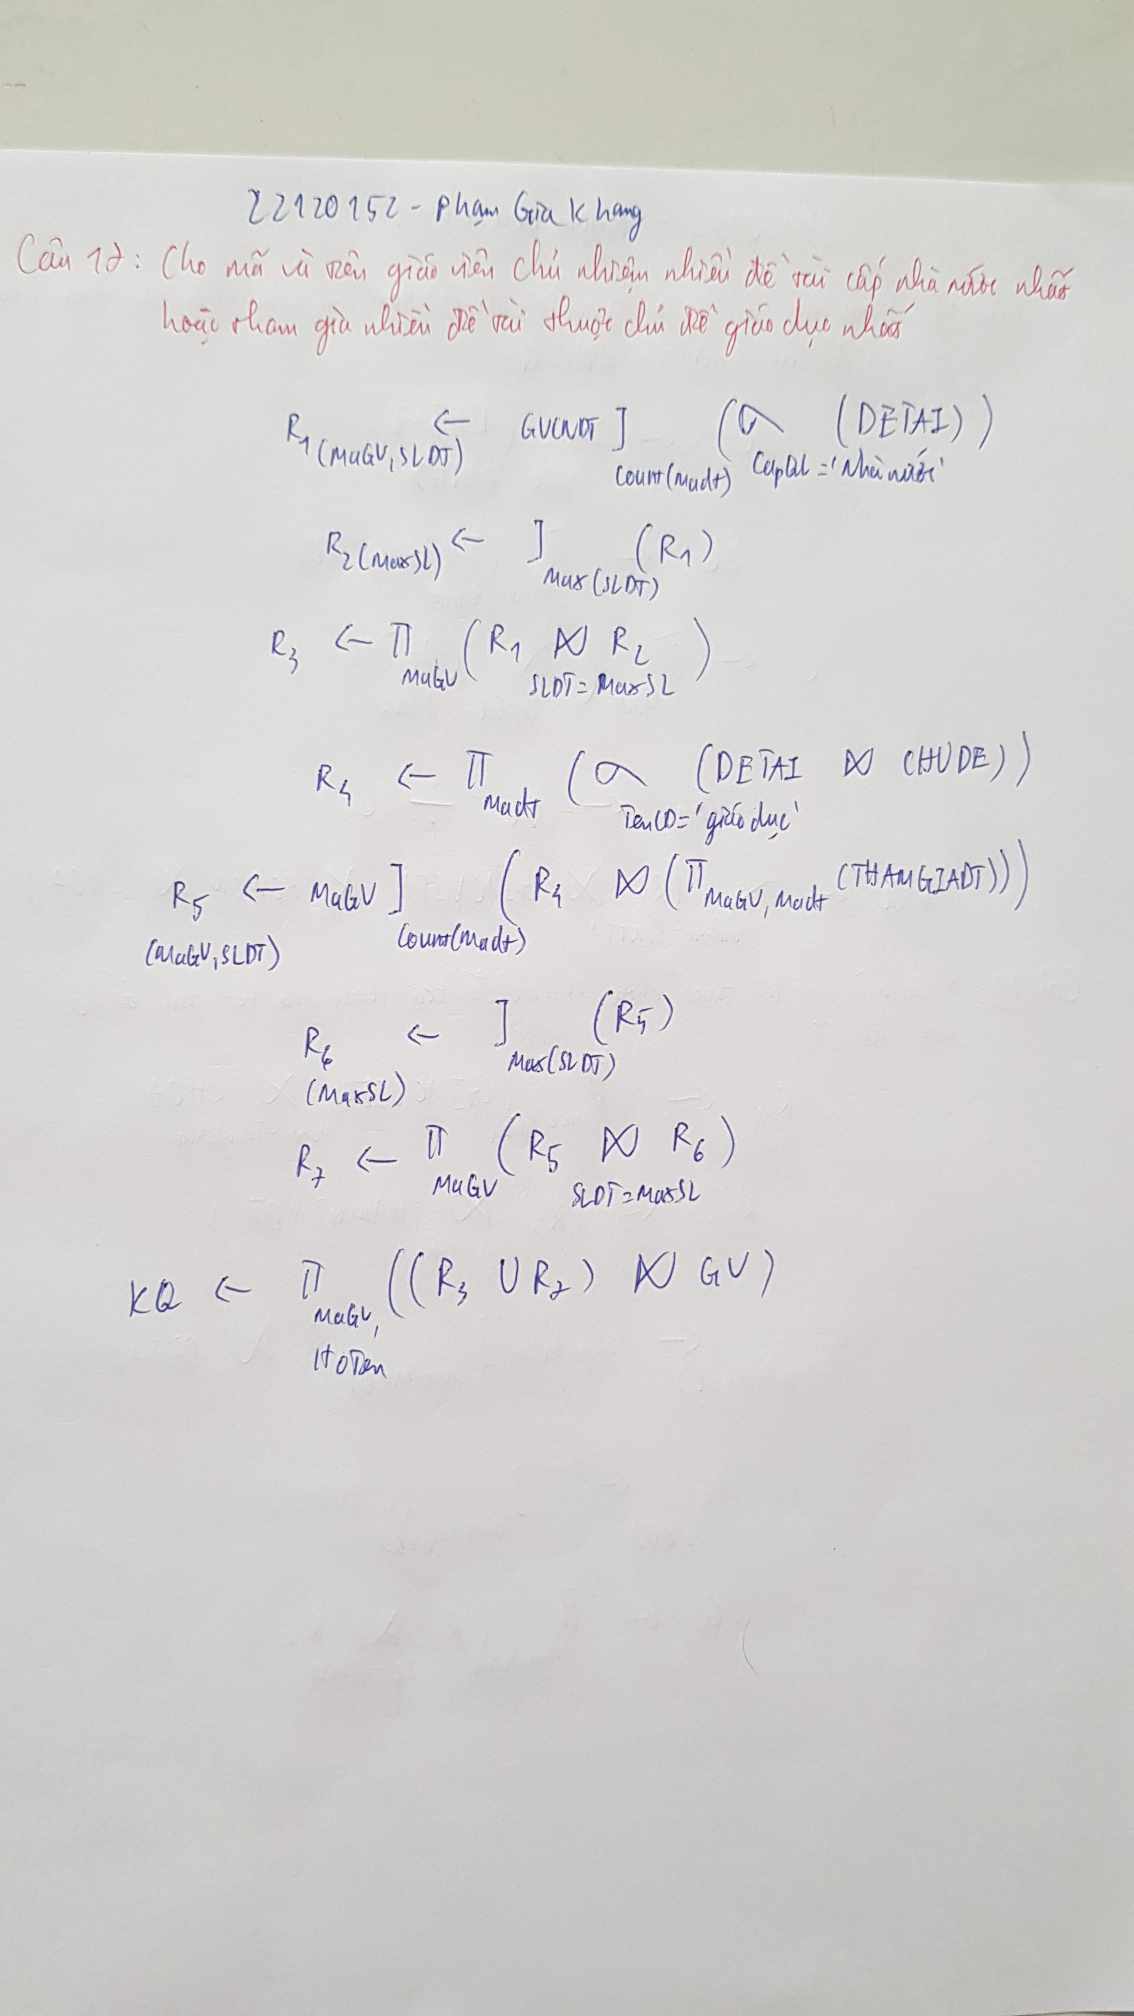 22120152 - Phạm Gia Khang
Câu 17: Cho mã và tên giáo viên chủ nhiệm nhiều đề tài cấp nhà nước nhất
hoặc tham gia nhiều đề tài thuộc chủ đề giáo dục nhất
R1(MaGV,SLDT) ← GVCNDT ℑ Count(Madt) (σ CapQL='Nhà nước' (DETAI))
R2(MaxSL) ← ℑ Max(SLDT) (R1)
R3 ← Π MaGV (R1 ⋈ SLDT=MaxSL R2)
R4 ← Π Madt (σ TenCD='giáo dục' (DETAI ⋈ CHUDE))
R5(MaGV,SLDT) ← MaGV ℑ Count(Madt) (R4 ⋈ (Π MaGV,Madt (THAMGIADT)))
R6(MaxSL) ← ℑ Max(SLDT) (R5)
R7 ← Π MaGV (R5 ⋈ SLDT=MaxSL R6)
KQ ← Π MaGV, HoTen ((R3 ∪ R7) ⋈ GV)